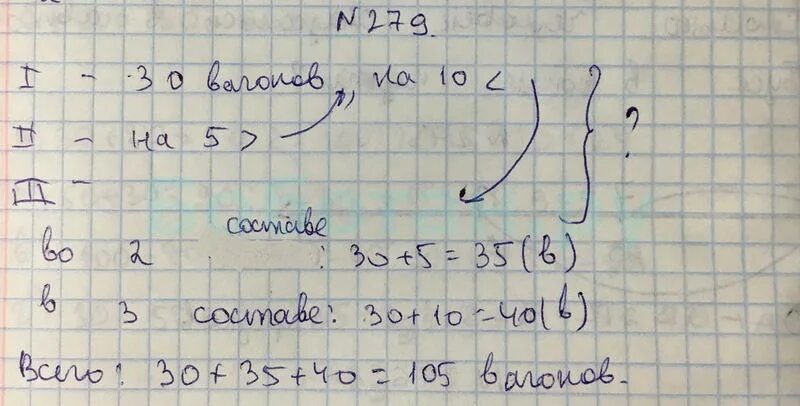 N 279.
I - 30 вагонов, на 10 <
II - на 5 >
?
III -
во 2 составе : 30 + 5 = 35 (в)
в 3 составе: 30 + 10 = 40 (в)
Всего: 30 + 35 + 40 = 105 вагонов.